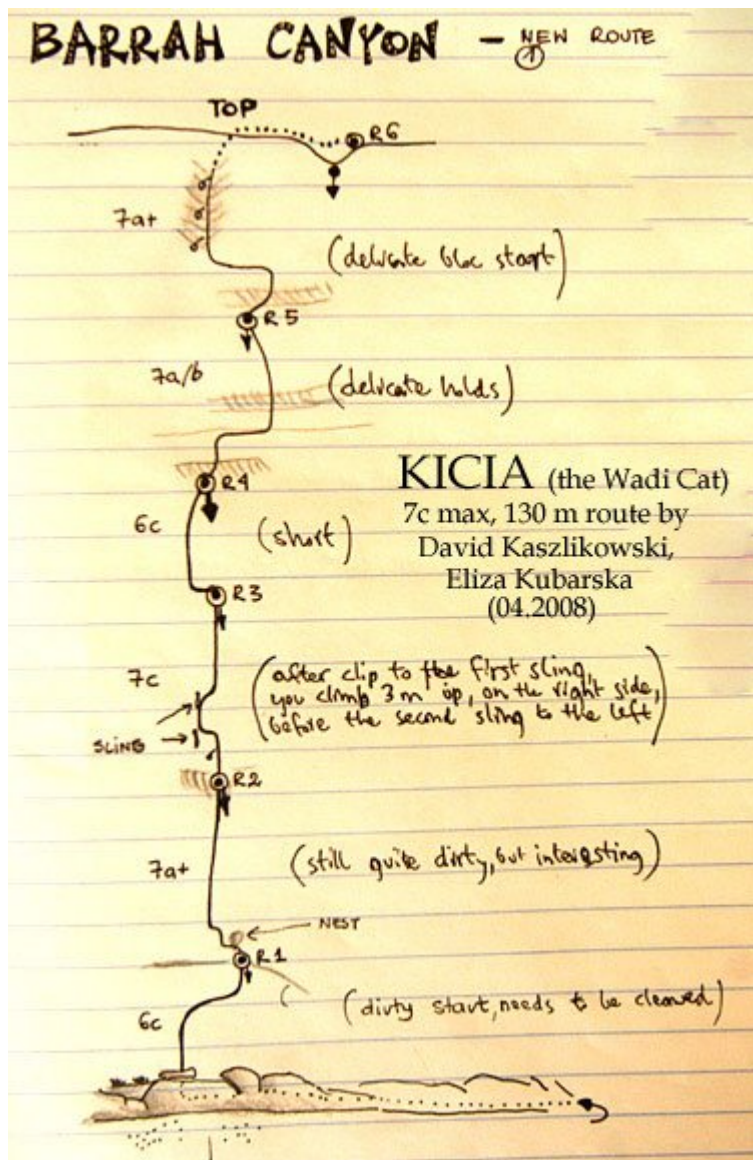 BARRAH CANYON - NEW ROUTE
1
TOP
R6
7a+
(delicate bloc start)
R5
7a/b
(delicate holds)
R4
KICIA (the Wadi Cat)
7c max, 130 m route by
David Kaszlikowski,
Eliza Kubarska
(04.2008)
6c
(short)
R3
7c
(after clip to the first sling,
you climb 3 m up, on the right side,
before the second sling to the left)
SLING
R2
7a+
(still quite dirty, but interesting)
NEST
R1
6c
(dirty start, needs to be cleaned)